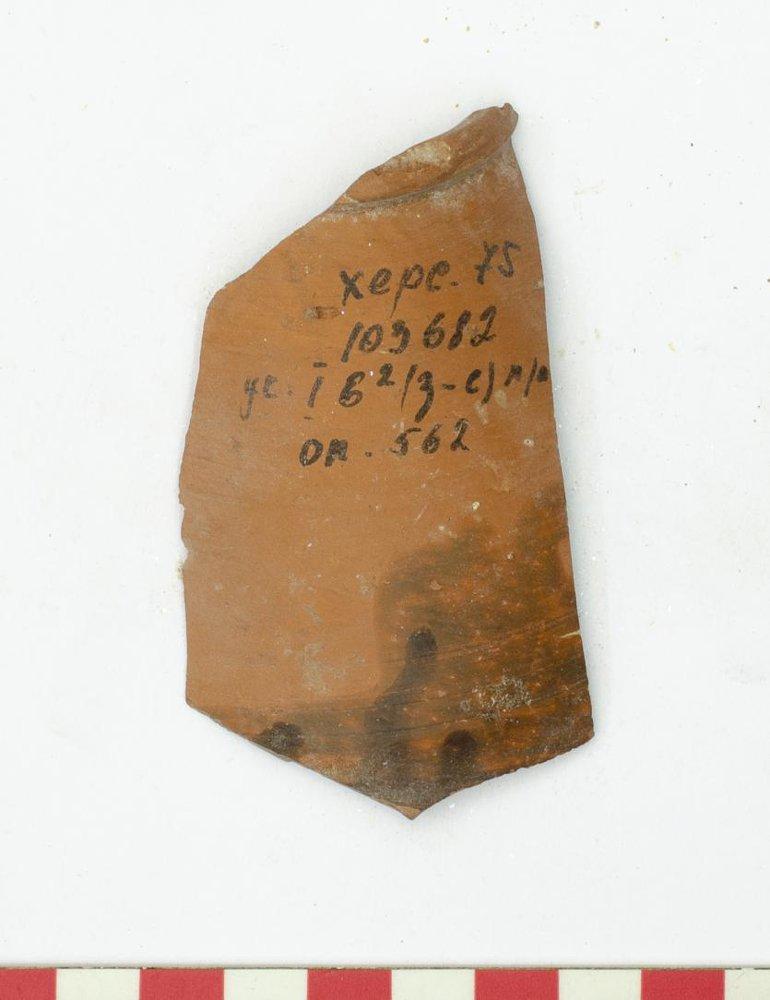 херс. 75
103682
ус. Ī б²(з-с)
оп. 562